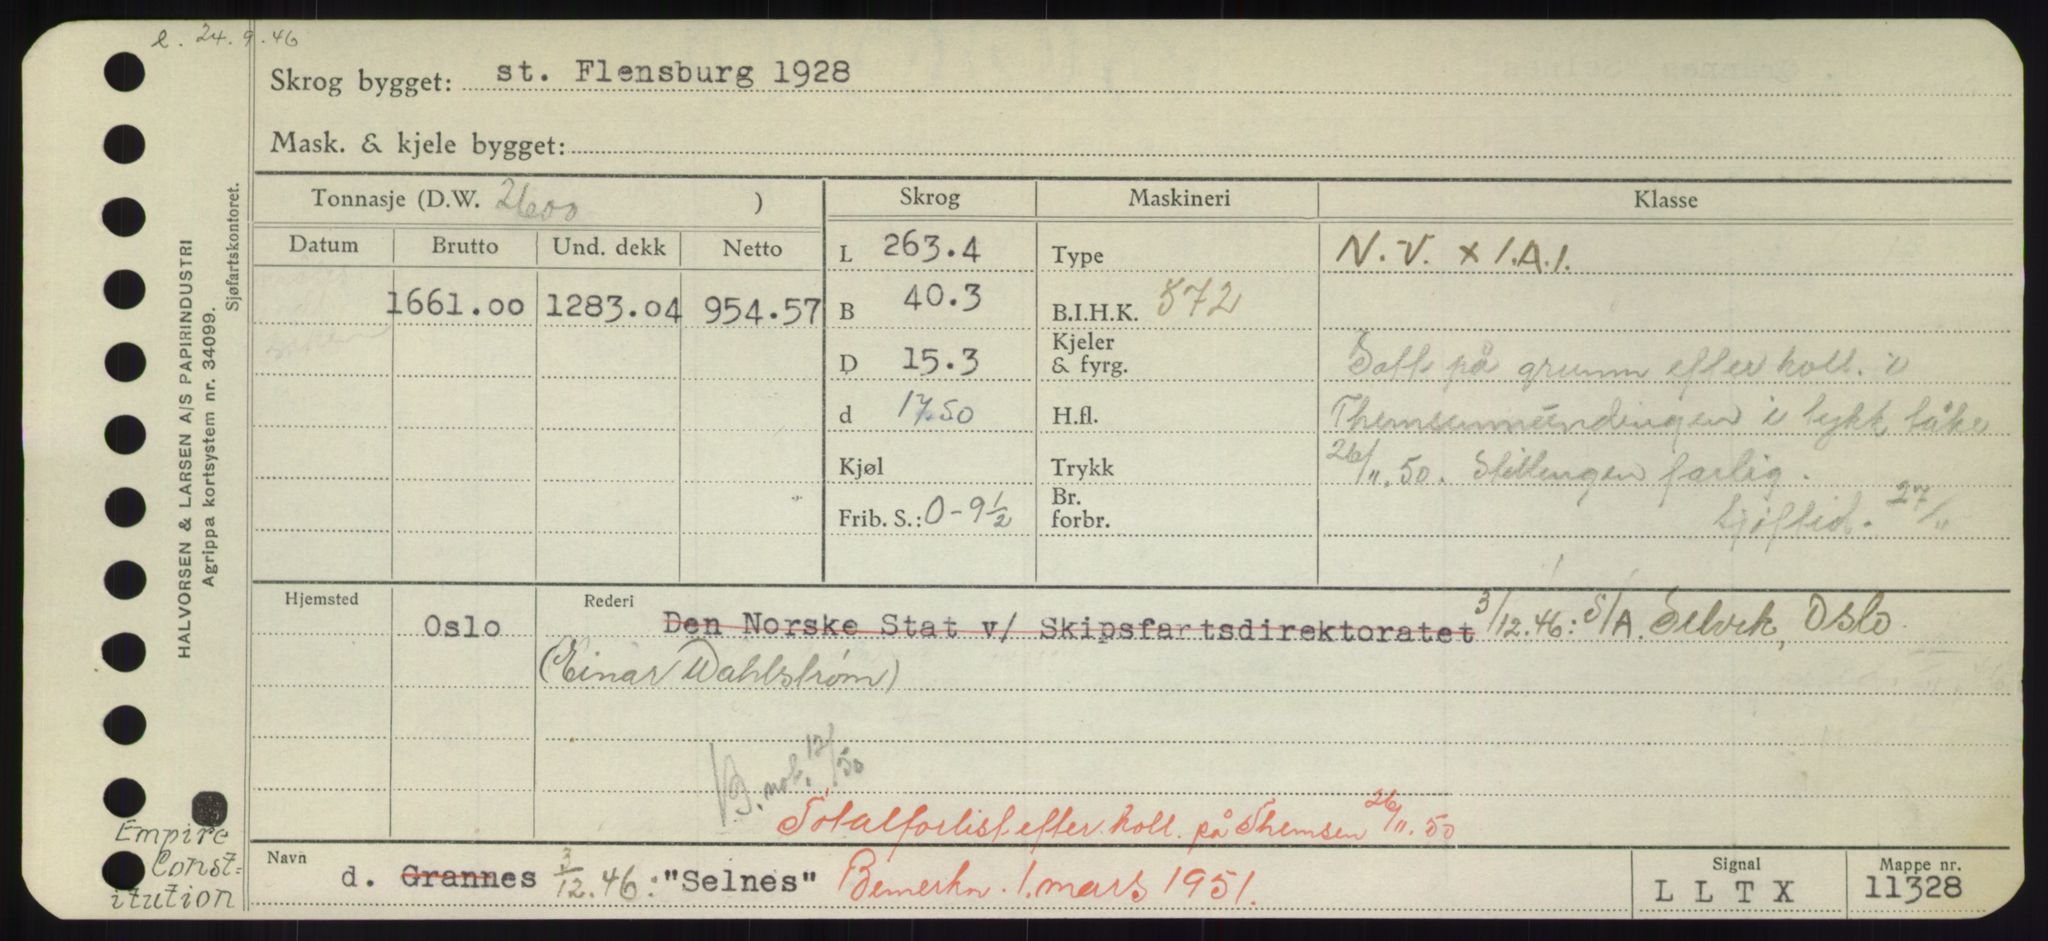 e. 24.9.46
Skrog bygget: st. Flensburg 1928
Mask. & kjele bygget:
Tonnasje (D.W. 2600 )
Skrog
Maskineri
Klasse
Datum
Brutto
Und. dekk
Netto
1661.00
1283.04
954.57
L 263.4
B 40.3
D 15.3
d 17.50
Kjøl
Frib. S.: 0-9½
Type
B.I.H.K. 572
Kjeler
& fyrg.
H.fl.
Trykk
Br.
forbr.
N.V. x 1.A.1.
Satt på grunn efter koll. i
Themsenmündingen i tykk tåke
26/11.50. Stillingen farlig.
Sjøftid. 27/11
Hjemsted
Oslo
Rederi
Den Norske Stat v/ Skipsfartsdirektoratet 3/12.46: S/A. Selvik, Oslo
(Einar Wahlstrøm)
B. not. 12/50
Totalforlist efter koll. på Themsen 26/11.50
Navn
d. Grannes 3/12.46: "Selnes" Bemerkn. 1. mars 1951.
Signal
LLTX
Mappe nr.
11328
HALVORSEN & LARSEN A/S PAPIRINDUSTRI
Agrippa kortsystem nr. 34099.
Sjøfartskontoret.
Empire
Const=
itution